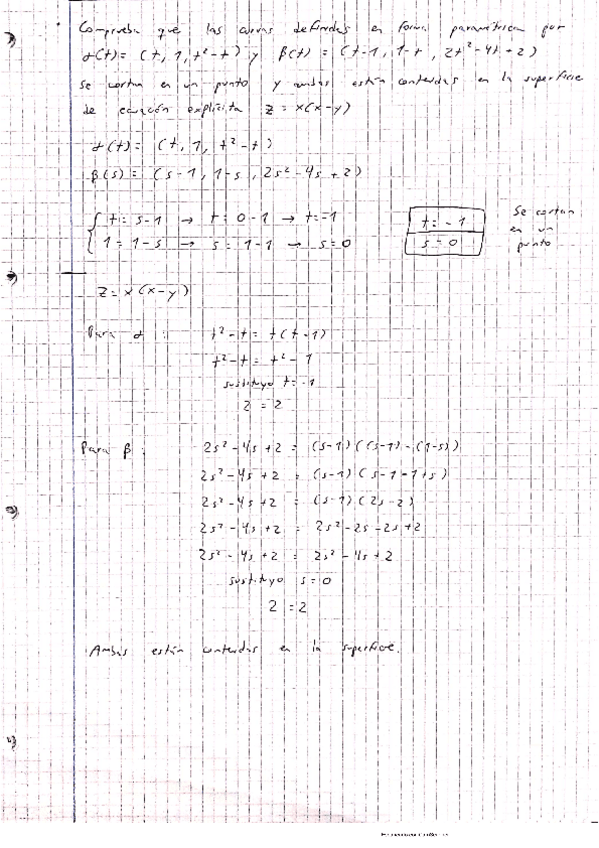 Comprueba que las curvas definidas en forma paramétrica por
α(t) = (t, 1, t² - t) y β(t) = (t-1, 1-t, 2t² - 4t + 2)
se cortan en un punto y ambas están contenidas en la superficie
de ecuación explícita z = x(x-y)
α(t) = (t, 1, t² - t)
β(s) = (s-1, 1-s, 2s² - 4s + 2)
{ t = s-1 → t = 0-1 → t = -1
1 = 1-s → s = 1-1 → s = 0
t = -1
s = 0
Se cortan
en un
punto
z = x(x-y)
Para α :
t² - t = t(t-1)
t² - t = t² - 1
sustituyo t = -1
2 = 2
Para β :
2s² - 4s + 2 = (s-1)((s-1) - (1-s))
2s² - 4s + 2 = (s-1)(s-1-1+s)
2s² - 4s + 2 = (s-1)(2s-2)
2s² - 4s + 2 = 2s² - 2s - 2s + 2
2s² - 4s + 2 = 2s² - 4s + 2
sustituyo s = 0
2 = 2
Ambas están contenidas en la superficie.